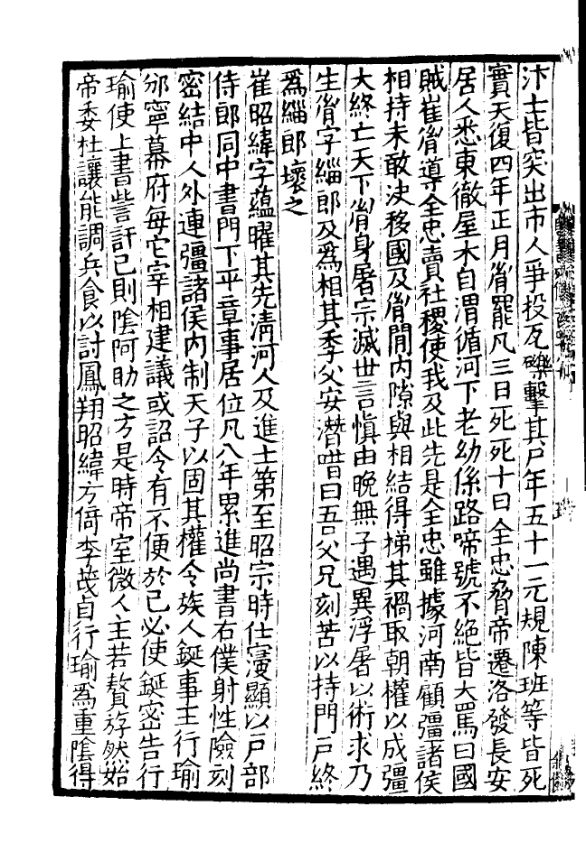 汴士皆突出市人爭投瓦礫擊其尸年五十一元規陳班等皆死
實天復四年正月𦙍罷凡三日死死十日全忠脅帝遷洛發長安
居人悉東徹屋木自渭循河下老幼係路啼號不絕皆大罵曰國
賊崔𦙍導全忠賣社稷使我及此先是全忠雖據河南顧彊諸侯
相持未敢決移國及𦙍閒內隙與相結得梯其禍取朝權以成彊
大終亡天下𦙍身屠宗滅世言慎由晚無子遇異浮屠以術求乃
生𦙍字緇郎及爲相其季父安潛唶曰吾父兄刻苦以持門戶終
爲緇郎壞之
崔昭緯字蘊曜其先清河人及進士第至昭宗時仕寖顯以戶部
侍郎同中書門下平章事居位凡八年累進尚書右僕射性險刻
密結中人外連彊諸侯內制天子以固其權令族人鋋事王行瑜
邠寧幕府每它宰相建議或詔令有不便於己必使鋋密告行
瑜使上書訾訐己則陰阿助之方是時帝室微人主若贅斿然始
帝委杜讓能調兵食以討鳳翔昭緯方倚李茂貞行瑜爲重陰得